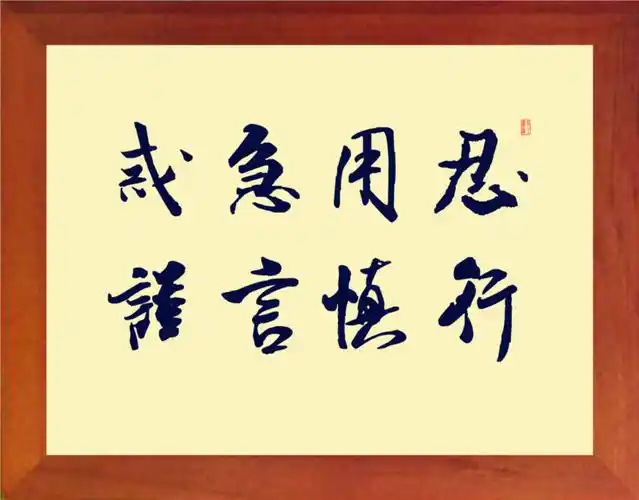 戒急用忍
謹言慎行